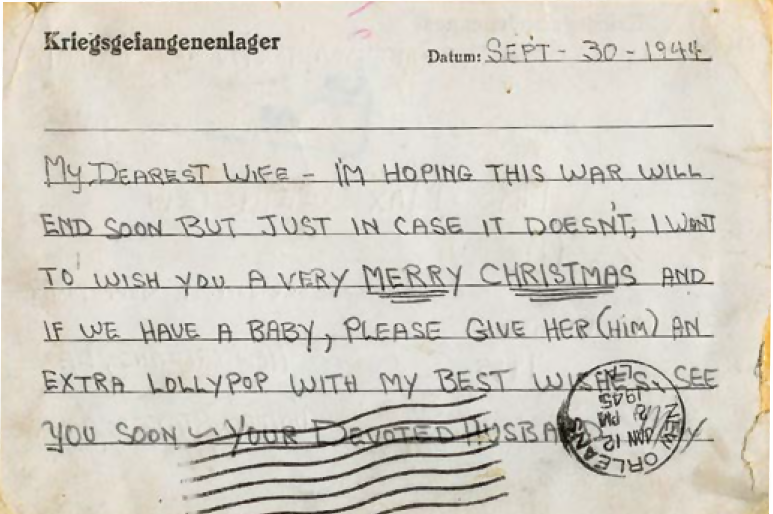 Kriegsgefangenenlager
Datum: SEPT - 30 - 1944
MY DEAREST WIFE - I'M HOPING THIS WAR WILL
END SOON BUT JUST IN CASE IT DOESN'T, I WANT
TO WISH YOU A VERY MERRY CHRISTMAS AND
IF WE HAVE A BABY, PLEASE GIVE HER (HIM) AN
EXTRA LOLLYPOP WITH MY BEST WISHES. SEE
YOU SOON ~ YOUR DEVOTED HUSBAND
NEW ORLEANS
JAN 12
8 PM
1945
LA.